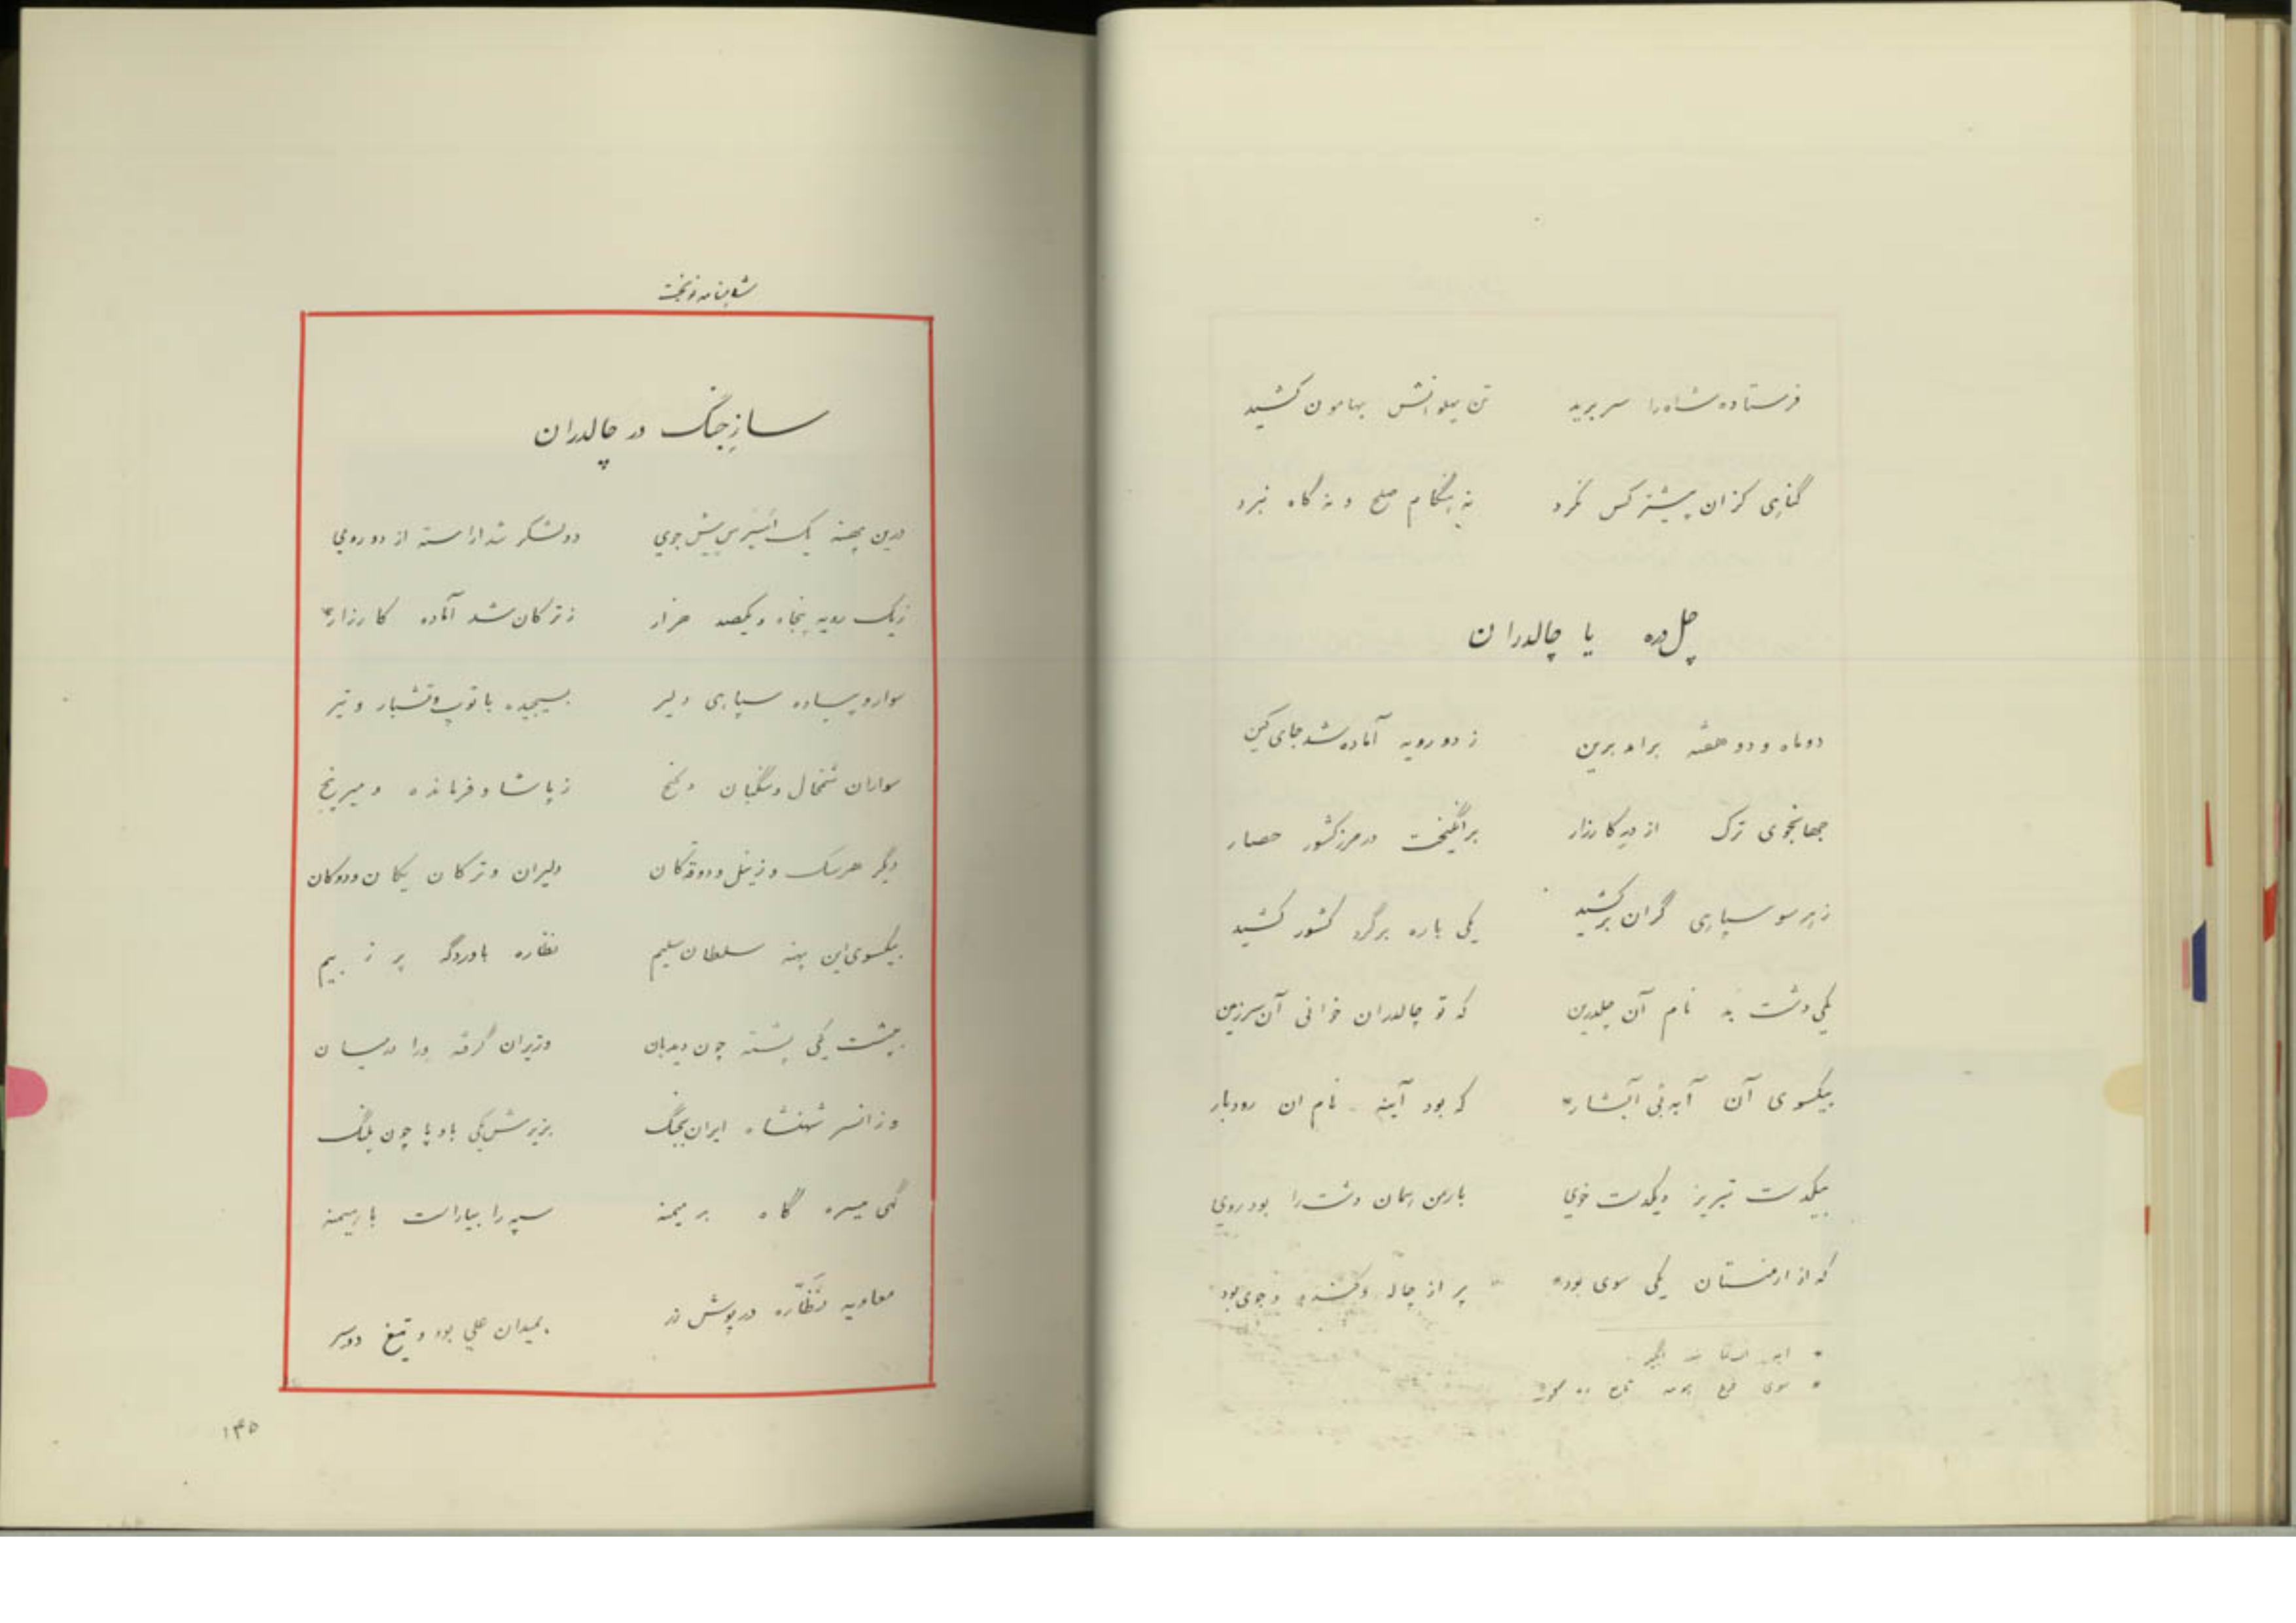 فرستاده شاه را سر برید تن پهلوانش بهامون کشید
گناهی کزان پیشتر کس نکرد نه هنگام صلح و نه گاه نبرد
چل دره یا چالدران
دو ماه و دو هفته برامد برین ز دو رویه آماده شد جای کین
جهانجوی ترک از در کارزار برانگیخت در مرز کشور حصار
ز هر سو سپاهی گران برکشید یکی باره برگرد کشور کشید
یکی دشت بد نام آن چلدرین که تو چالدران خوانی آن سرزمین
بیکسوی آن آبشار که بود آینه نام ان رودبار
بیکدست تبریز و یکدست خوی بارمن رسان دشت را بود روی
که از ارمنستان یکی سوی بود پر از چاله و کنده و جوی بود
شاهنامه نوبخت
ساز جنگ در چالدران
درین پهنه یک پیش جوی دو لشکر شد اراسته از دو روی
ز یک رویه پنجاه و یکصد هزار ز ترکان شد آماده کارزار
سوار و پیاده سپاهی دلیر بسیجیده با توپ و تیر
سواران شمخال و سگبان و ز پاشا و فرمانده و میرپنج
دگر هرسک و دلیران و ترکان یکان و دوکان
بیکسوی این پهنه سلطان سلیم نظاره باوردگه پر ز بیم
بپشت یکی پشته چون دیدبان وزیران گرفته ورا در میان
وزانسر شهنشاه ایران بجنگ بزیرش یکی بادپا چون پلنگ
گهی میسره گاه بر میمنه سپه را بیاراست با رهیمنه
معاویه نظّاره در پوش زر بمیدان علی بود و تیغ دوسر
۱۴۵